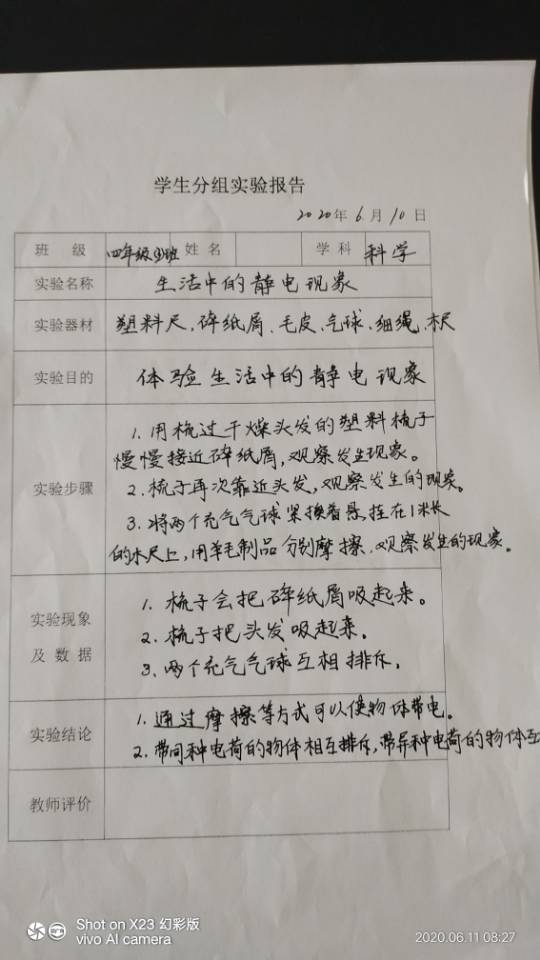 学生分组实验报告
2020年6月10日
班 级 四年级①班 姓 名 学 科 科学
实验名称 生活中的静电现象
实验器材 塑料尺、碎纸屑、毛皮、气球、细绳、木尺
实验目的 体验生活中的静电现象
实验步骤
1. 用梳过干燥头发的塑料梳子
慢慢接近碎纸屑,观察发生现象。
2. 梳子再次靠近头发,观察发生的现象。
3. 将两个充气气球紧挨着悬挂在1米长
的木尺上,用羊毛制品分别摩擦,观察发生的现象。
实验现象
及 数 据
1. 梳子会把碎纸屑吸起来。
2. 梳子把头发吸起来。
3. 两个充气气球互相排斥。
实验结论
1. 通过摩擦等方式可以使物体带电。
2. 带同种电荷的物体相互排斥,带异种电荷的物体互
教师评价
Shot on X23 幻彩版
vivo AI camera
2020.06.11 08:27